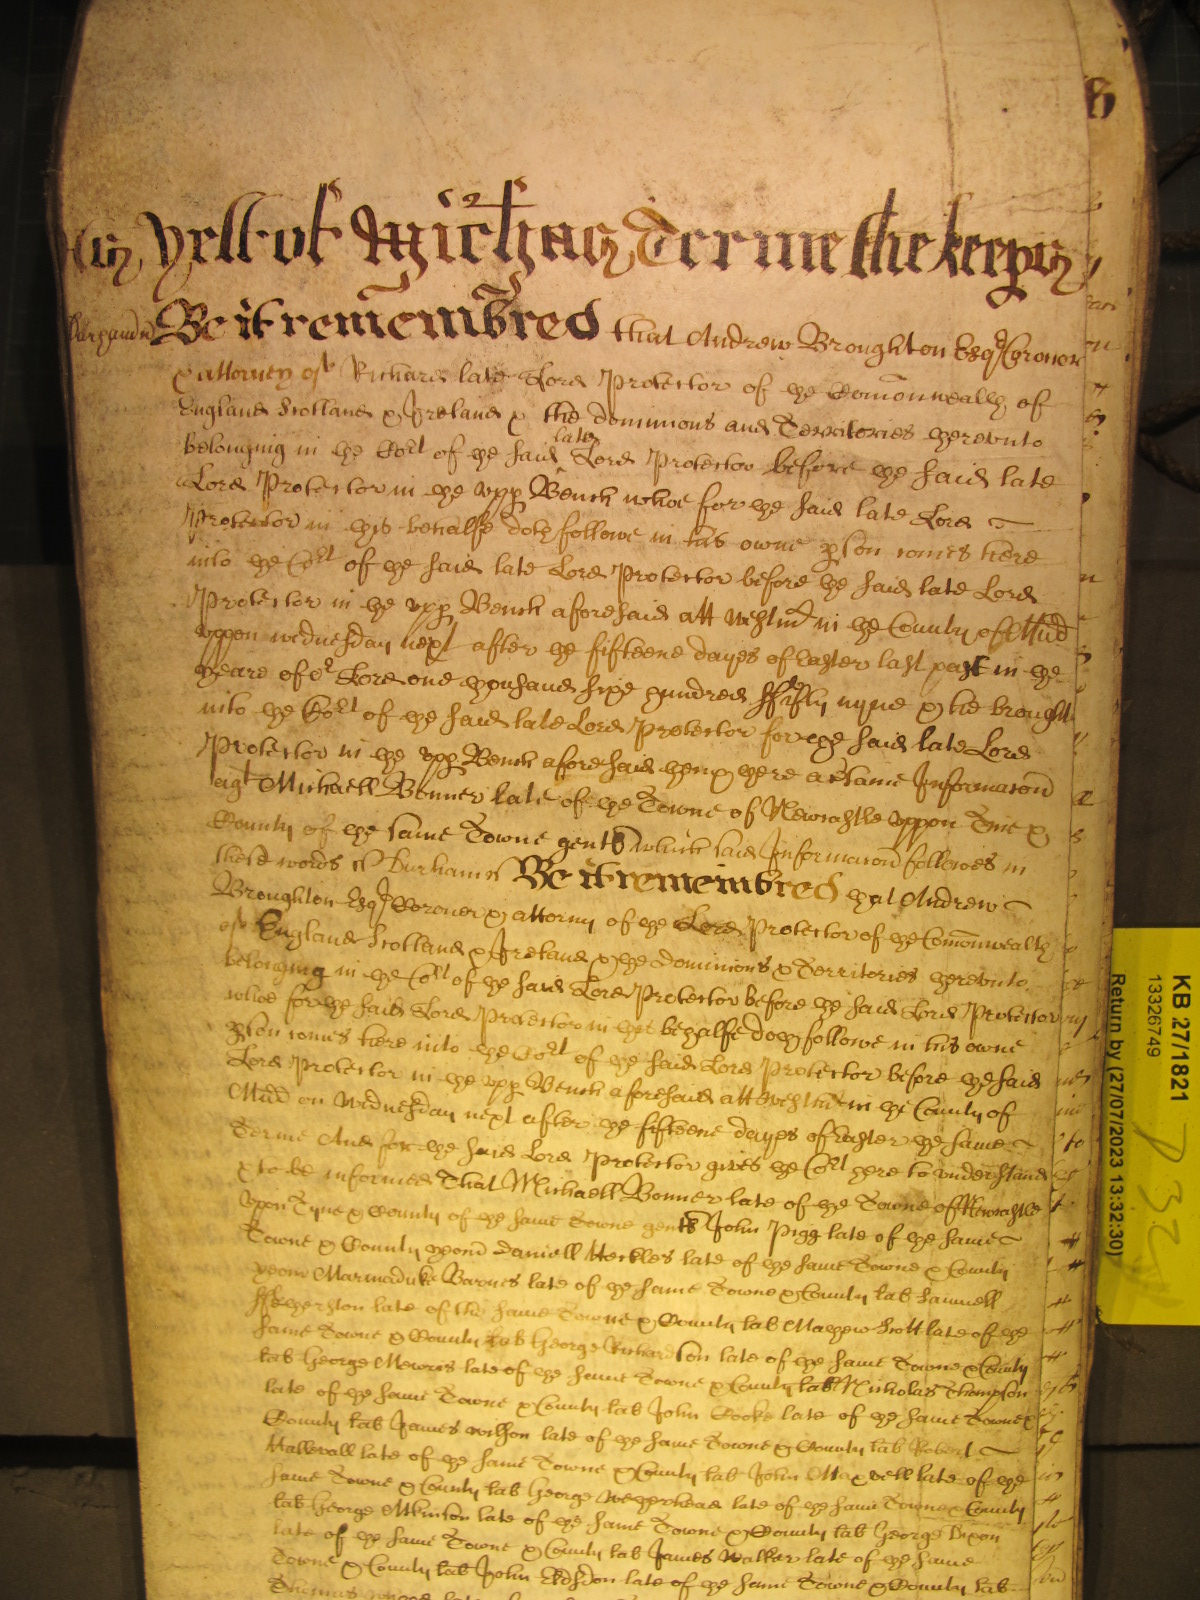 yett of Mich Terme the keepers
Be it remembred that Andrew Broughton Esqr Coronor
& attorney of Richard late Lord Protector of the Comonwealth of
England Scotland & Ireland & the dominions and Territories thereunto
belonging in the Cort of the said late Lord Protector before the said late
Lord Protector in the upp Bench whoe for the said late Lord
Protector in this behalfe doth followe in his owne pson comes here
into the Cort of the said late Lord Protector before the said late Lord
Protector in the upp Bench aforesaid att Westmr in the County of Midd
uppon wednesday next after the fifteene dayes of Easter last past in the
yeare of or Lord one thousand sixe hundred fifty nyne & he brought
into the Cort of the said late Lord Protector for the said late Lord
Protector in the upp Bench aforesaid then & there a certaine Informacon
agt Michaell Bonner late of the Towne of Newcastle uppon Tine &
County of the same Towne gent which said Informacon followes in
these words Durham Be it remembred that Andrew
Broughton Esqr Coroner & attorny of the Lord Protector of the Comonwealth
of England Scotland & Ireland & the dominions & Territories thereunto
belonging in the Cort of the said Lord Protector before the said Lord Protector
whoe for the said Lord Protector in this behalfe doth followe in his owne
pson comes here into the Cort of the said Lord Protector before the said
Lord Protector in the upp Bench aforesaid att Westmr in the County of
Midd on Wednesday next after the fifteene dayes of Easter the same
Terme And for the said Lord Protector gives the Cort here to understand
& to be informed That Michaell Bonner late of the Towne of Newcastle
upon Tyne & County of the same Towne gent John Pigg late of the same
Towne & County yeom daniell Herkles late of the same Towne & County
yeom Marmaduke Barnes late of the same Towne & County lab Samuell
ffetherston late of the same Towne & County lab Mathew Scott late of the
same Towne & County lab George Richardson late of the same Towne & County
lab George Mewres late of the same Towne & County lab Nicholas Thompson
late of the same Towne & County lab John Cooke late of the same Towne &
County lab James wilson late of the same Towne & County lab Robert
Hallowall late of the same Towne & County lab John Maxwell late of the
same Towne & County lab George Wetherhead late of the same Towne & County
lab George Atkinson late of the same Towne & County lab George Dixon
late of the same Towne & County lab James Walker late of the same
Towne & County lab John late of the same Towne & County lab
Thomas late
KB 27/1821
13326749
Return by (27/07/2023 13:32:30)